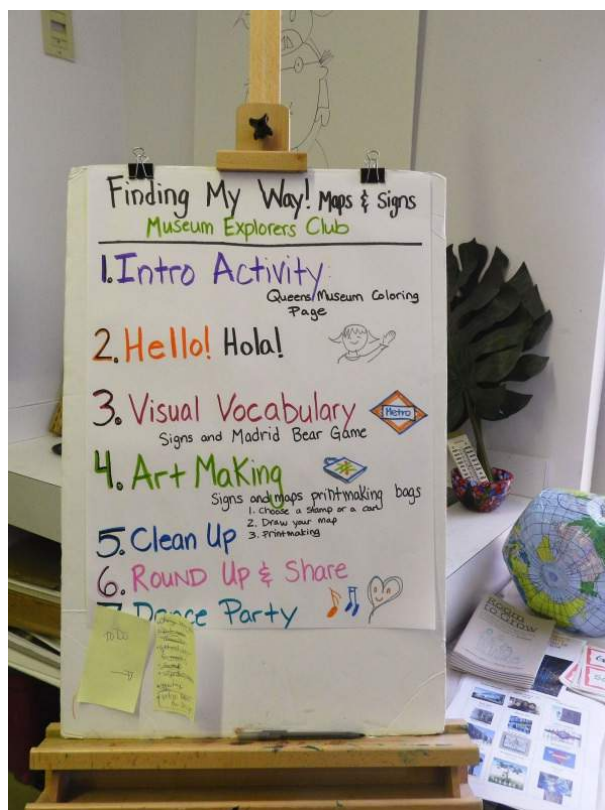 Finding My Way! Maps & Signs
Museum Explorers Club
1. Intro Activity:
Queens Museum Coloring
Page
2. Hello! Hola!
3. Visual Vocabulary
Metro
Signs and Madrid Bear Game
4. Art Making
Signs and maps printmaking bags
1. Choose a stamp or a card
2. Draw your map
3. Printmaking
5. Clean Up
6. ROUND UP & Share
7. Dance Party
Room
to Grow